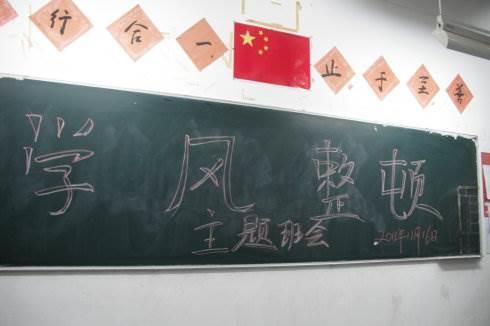 行合一 止于至善
学风整顿
主题班会
2011年11月16日